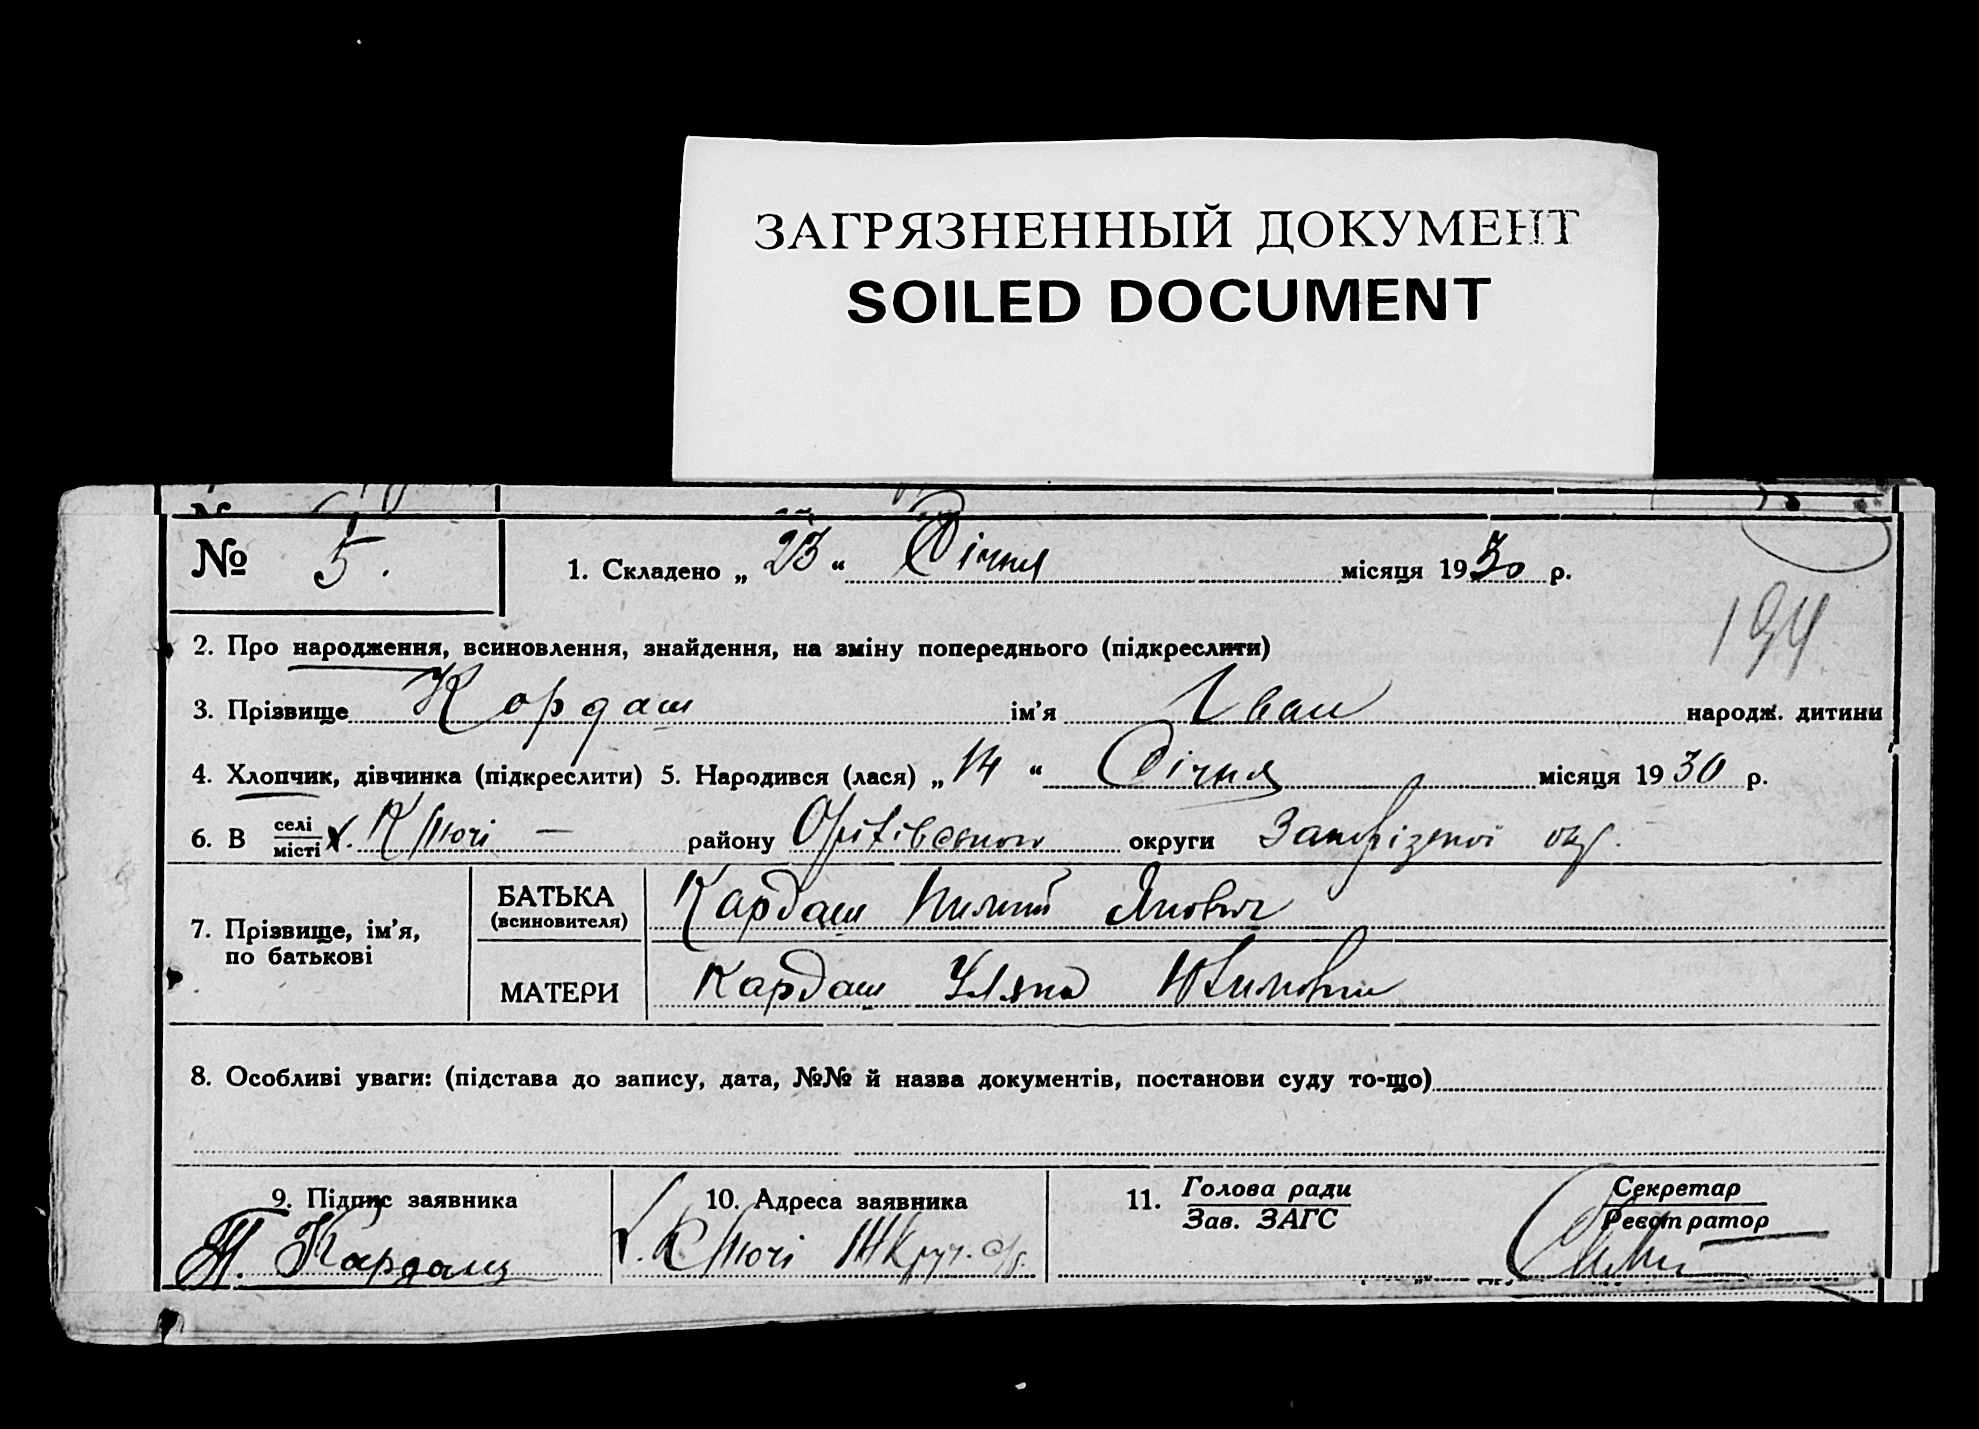 ЗАГРЯЗНЕННЫЙ ДОКУМЕНТ
SOILED DOCUMENT
№ 5. 1. Складено „ 23 “ Січня місяця 1930 р.
194
2. Про народження, всиновлення, знайдення, на зміну попереднього (підкреслити)
3. Прізвище Кордаш ім’я Іван народж. дитини
4. Хлопчик, дівчинка (підкреслити) 5. Народився (лася) „ 14 “ Січня місяця 1930 р.
6. В селі/місті х. Ключі — району Оріхівського округи окр.
7. Прізвище, ім’я, по батькові
БАТЬКА (всиновителя) Кардаш Якович
МАТЕРИ Кардаш Уляна
8. Особливі уваги: (підстава до запису, дата, №№ й назва документів, постанови суду то-що)
9. Підпис заявника 10. Адреса заявника 11. Голова ради/Зав. ЗАГС Секретар/Реєстратор
Кардаш х. Ключі